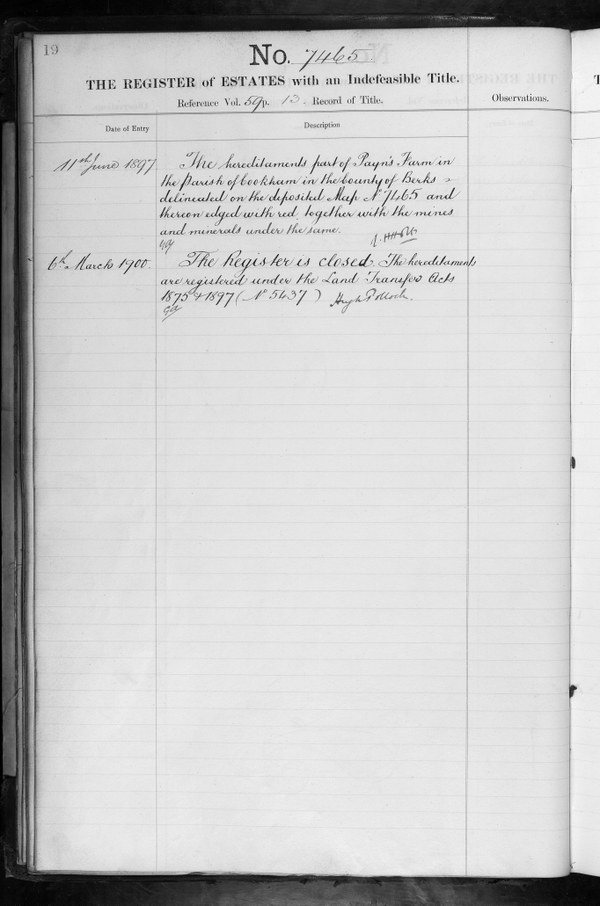 19
No. 7465
THE REGISTER of ESTATES with an Indefeasible Title.
Reference Vol. 59 p. 13. Record of Title.
Observations.
Date of Entry
Description
11th June 1897
The hereditaments part of Payn's Farm in
the Parish of Cookham in the County of Berks
delineated on the deposited Map No 7465 and
thereon edged with red together with the mines
and minerals under the same.
6th March 1900.
The Register is closed. The hereditaments
are registered under the Land Transfer Acts
1875 & 1897 (No 5437)
Hugh Pollock.